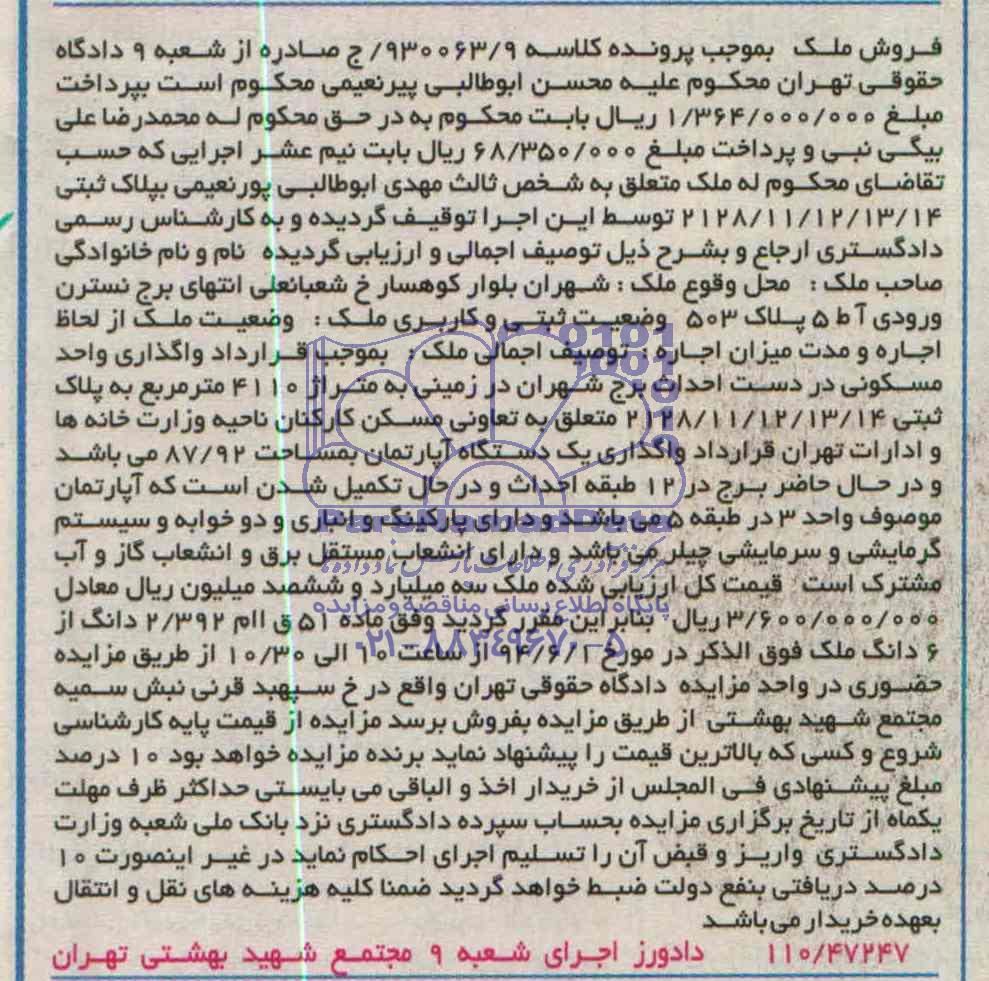 فروش ملک بموجب پرونده کلاسه ۹۳۰۰۶۳/۹/ ج صادره از شعبه ۹ دادگاه
حقوقی تهران محکوم علیه محسن ابوطالبی پیرنعیمی محکوم است بپرداخت
مبلغ ۱/۳۶۴/۰۰۰/۰۰۰ ریال بابت محکوم به در حق محکوم له محمدرضا علی
بیگی نبی و پرداخت مبلغ ۶۸/۳۵۰/۰۰۰ ریال بابت نیم عشر اجرایی که حسب
تقاضای محکوم له ملک متعلق به شخص ثالث مهدی ابوطالبی پورنعیمی بپلاک ثبتی
۲۱۲۸/۱۱/۱۲/۱۳/۱۴ توسط این اجرا توقیف گردیده و به کارشناس رسمی
دادگستری ارجاع و بشرح ذیل توصیف اجمالی و ارزیابی گردیده نام و نام خانوادگی
صاحب ملک : محل وقوع ملک : شهران بلوار کوهسار خ شعبانعلی انتهای برج نسترن
ورودی آ ط ۵ پلاک ۵۰۳ وضعیت ثبتی و کاربری ملک : وضعیت ملک از لحاظ
اجاره و مدت میزان اجاره : توصیف اجمالی ملک : بموجب قرارداد واگذاری واحد
مسکونی در دست احداث برج شهران در زمینی به متراژ ۴۱۱۰ مترمربع به پلاک
ثبتی ۲۱۲۸/۱۱/۱۲/۱۳/۱۴ متعلق به تعاونی مسکن کارکنان ناحیه وزارت خانه ها
و ادارات تهران قرارداد واگذاری یک دستگاه آپارتمان بمساحت ۸۷/۹۲ می باشد
و در حال حاضر برج در ۱۲ طبقه احداث و در حال تکمیل شدن است که آپارتمان
موصوف واحد ۳ در طبقه ۵ می باشد و دارای پارکینگ و انباری و دو خوابه و سیستم
گرمایشی و سرمایشی چیلر می باشد و دارای انشعاب مستقل برق و انشعاب گاز و آب
مشترک است قیمت کل ارزیابی شده ملک سه میلیارد و ششصد میلیون ریال معادل
۳/۶۰۰/۰۰۰/۰۰۰ ریال بنابراین مقرر گردید وفق ماده ۵۱ ق اام ۲/۳۹۲ دانگ از
۶ دانگ ملک فوق الذکر در مورخ ۹۴/۶/۱ از ساعت ۱۰ الی ۱۰/۳۰ از طریق مزایده
حضوری در واحد مزایده دادگاه حقوقی تهران واقع در خ سپهبد قرنی نبش سمیه
مجتمع شهید بهشتی از طریق مزایده بفروش برسد مزایده از قیمت پایه کارشناسی
شروع و کسی که بالاترین قیمت را پیشنهاد نماید برنده مزایده خواهد بود ۱۰ درصد
مبلغ پیشنهادی فی المجلس از خریدار اخذ و الباقی می بایستی حداکثر ظرف مهلت
یکماه از تاریخ برگزاری مزایده بحساب سپرده دادگستری نزد بانک ملی شعبه وزارت
دادگستری واریز و قبض آن را تسلیم اجرای احکام نماید در غیر اینصورت ۱۰
درصد دریافتی بنفع دولت ضبط خواهد گردید ضمنا کلیه هزینه های نقل و انتقال
بعهده خریدار می باشد
۱۱۰/۴۷۲۴۷ دادورز اجرای شعبه ۹ مجتمع شهید بهشتی تهران
ParsNamadData
پایگاه اطلاع رسانی مناقصه و مزایده
۰۲۱-۸۸۳۴۹۶۷۰-۵